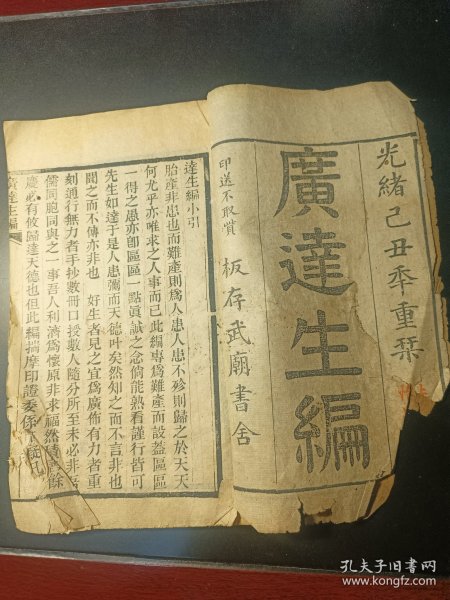 光緒己丑年重栞
廣達生編
印送不取貲 板存武廟書舍
達生編小引
胎產非患也而難產則為人患人患不殄則歸之於天天
何尤乎亦唯求之人事而已此編專為難產而設益區區
一得之愚亦卽區區一點眞誠之念倘能熟看謹行皆可
先生如達于是人患彌而天德叶矣然知之而不言非也
聞之而不傳亦非也 好生者見之宜為廣佈有力者重
刻通行無力者手抄數冊口授數人隨分所至未必非吾
儒同胞同與之一事吾人利濟為懷原非求福然積善餘
慶必有攸歸達天德也但此編揣摩印證委係
廣達生編
孔夫子旧书网
www.kongfz.com